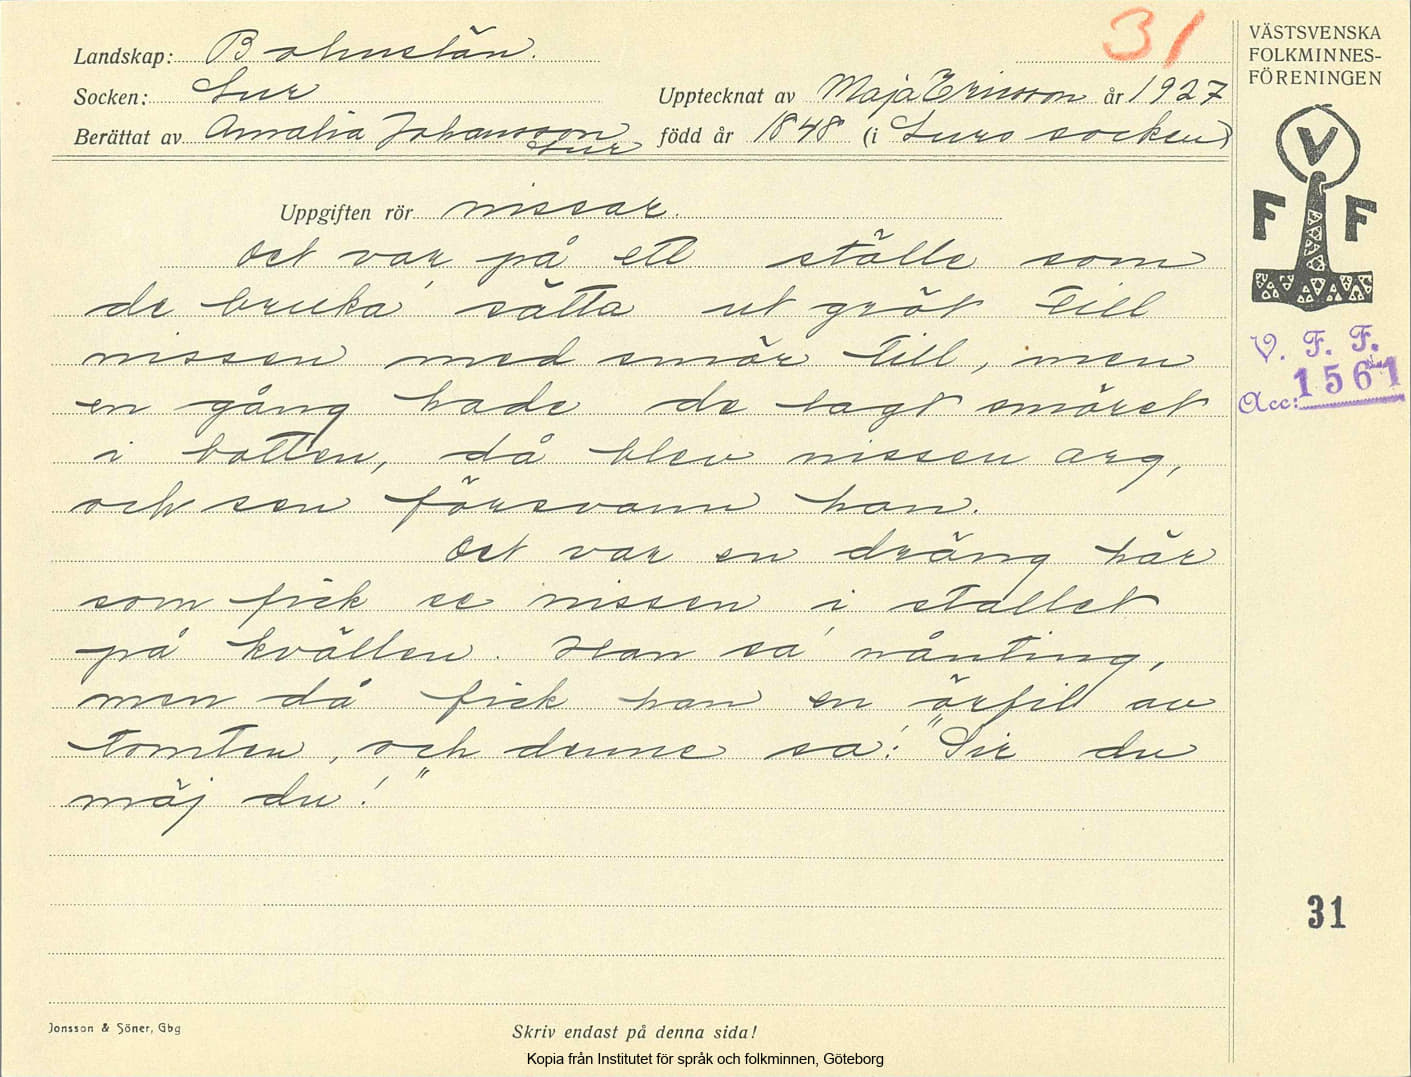 31
VÄSTSVENSKA
FOLKMINNES-
FÖRENINGEN
Landskap: Bohuslän.
Socken: Lur
Upptecknat av Maja Ericsson år 1927
Berättat av Amalia Johansson
Lur
född år 1848 (i Lurs socken)
V
F F
Uppgiften rör nissar.
Det var på ett ställe som
de bruka' sätta ut gröt till
nissen med smör till, men
en gång hade de lagt smöret
i botten, då blev nissen arg,
och sen försvann han.
Det var en dräng här
som fick se nissen i stallet
på kvällen. Han sa' nånting,
men då fick han en örfil av
tomten, och denne sa: "Sir du
mäj du!"
V. F. F.
Acc: 1561
31
Jonsson & Söner, Gbg
Skriv endast på denna sida!
Kopia från Institutet för språk och folkminnen, Göteborg